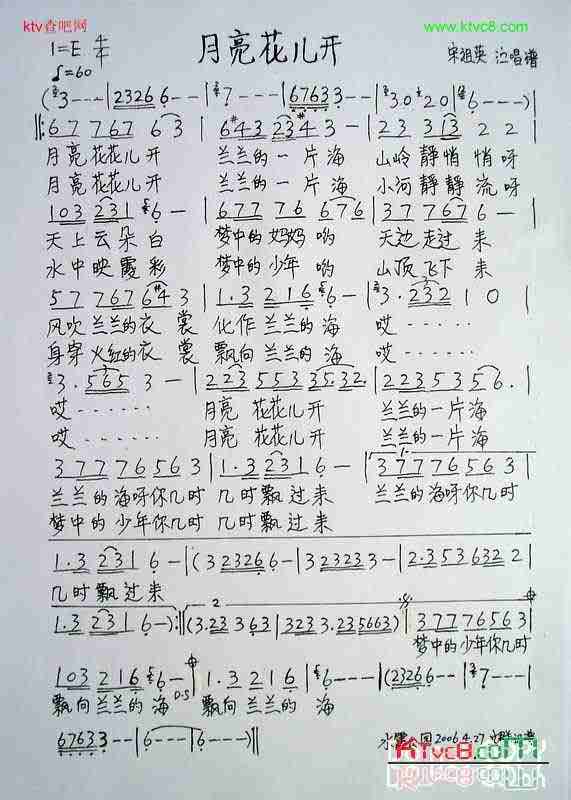 ktv查吧网
www.ktvc8.com
1=E 4/4
♩=60
月亮花儿开
宋祖英 泣唱谱
(3---|23266--|7---|676333--|3020|6---)|
‖:67 767 63|6#43 23#43-|23 313 22|
月亮花花儿开 兰兰的一片海 山岭静悄悄呀
月亮花花儿开 兰兰的一片海 小河静静流呀
103 231 6-|677 76 676|377767 6-|
天上云朵白 梦中的妈妈哟 天边走过来
水中映霞彩 梦中的少年哟 山顶飞下来
57 767 6#43|1.3 216 6-|3.232 10|
风吹兰兰的衣裳 化作兰兰的海 哎······
身穿火红的衣裳 飘向兰兰的海 哎······
3.565 3-|223 553 35.32|2235356.|
哎······ 月亮花花儿开 兰兰的一片海
哎······ 月亮花花儿开 兰兰的一片海
37776563|1.3 231 6-|37776563|
兰兰的海呀你几时 几时飘过来 兰兰的海呀你几时
梦中的少年你几时 几时飘过来
1.3 231 6-|(323266-|323233-|2.353632 2|
几时飘过来
1.3 231 6-):‖(3.233 63|323 3.235663)|37776563|
2
梦中的少年你几时
103 216 6-|1.3 216|6---|(23266--|7---|
D.S
飘向兰兰的海 飘向兰兰的海
67633--|6---|6---)‖
2006.4.27
Ktvc8.com